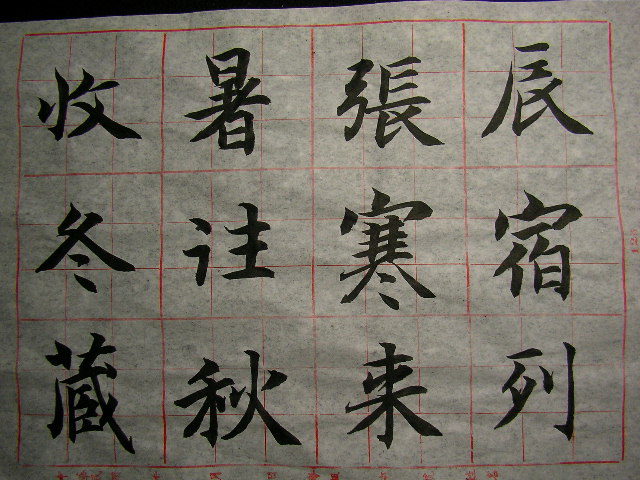 辰宿列
張寒来
暑往秋
收冬蔵